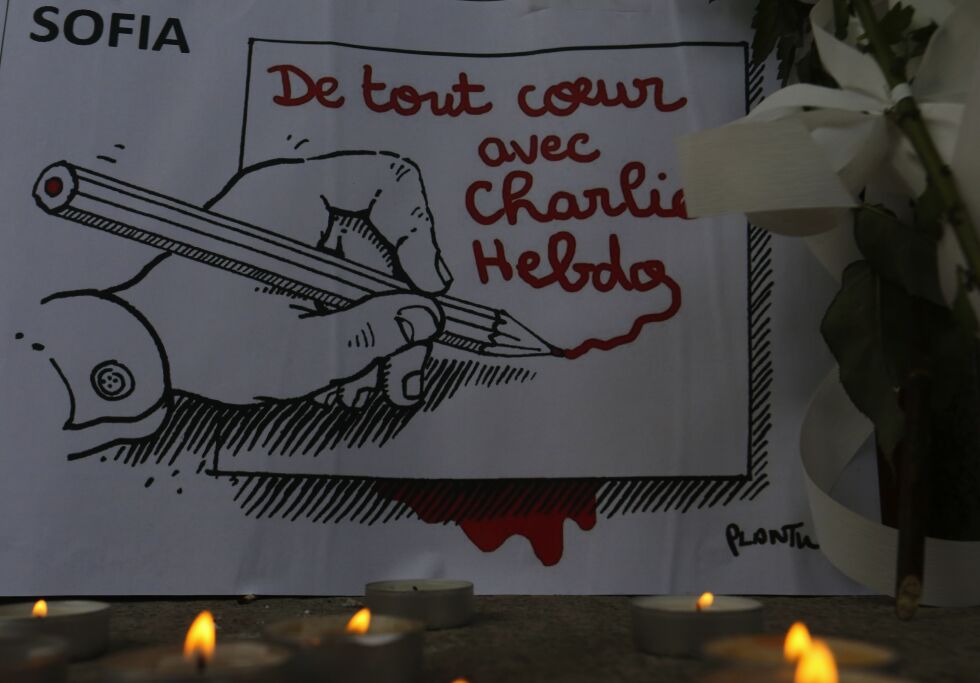 SOFIA
De tout cœur
avec
Charlie
Hebdo
PLANTU